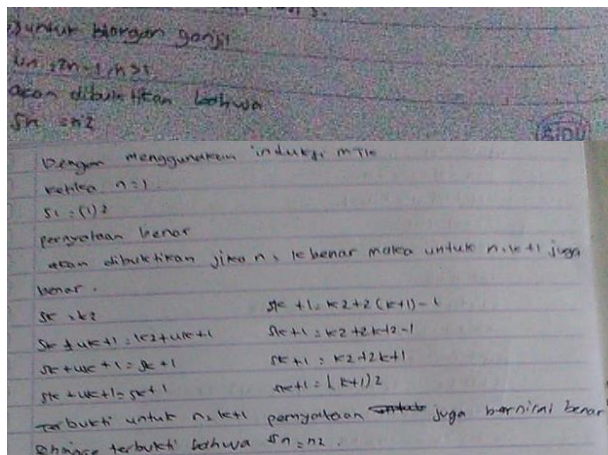 untuk bilangan ganjil
un = 2n - 1, n ≥ 1
akan dibuktikan bahwa
Sn = n2
SiDU
Dengan menggunakan induksi MTK
ketika n = 1
S1 = (1)2
pernyataan benar
akan dibuktikan jika n = k benar maka untuk n = k + 1 juga
benar.
Sk = k2
Sk + uk + 1 = k2 + uk + 1
Sk + uk + 1 = Sk + 1
Sk + uk + 1 = Sk + 1
Sk + 1 = k2 + 2(k + 1) - 1
Sk + 1 = k2 + 2k + 2 - 1
Sk + 1 = k2 + 2k + 1
Sk + 1 = (k + 1)2
terbukti untuk n = k + 1 pernyataan juga bernilai benar
terbukti bahwa Sn = n2.